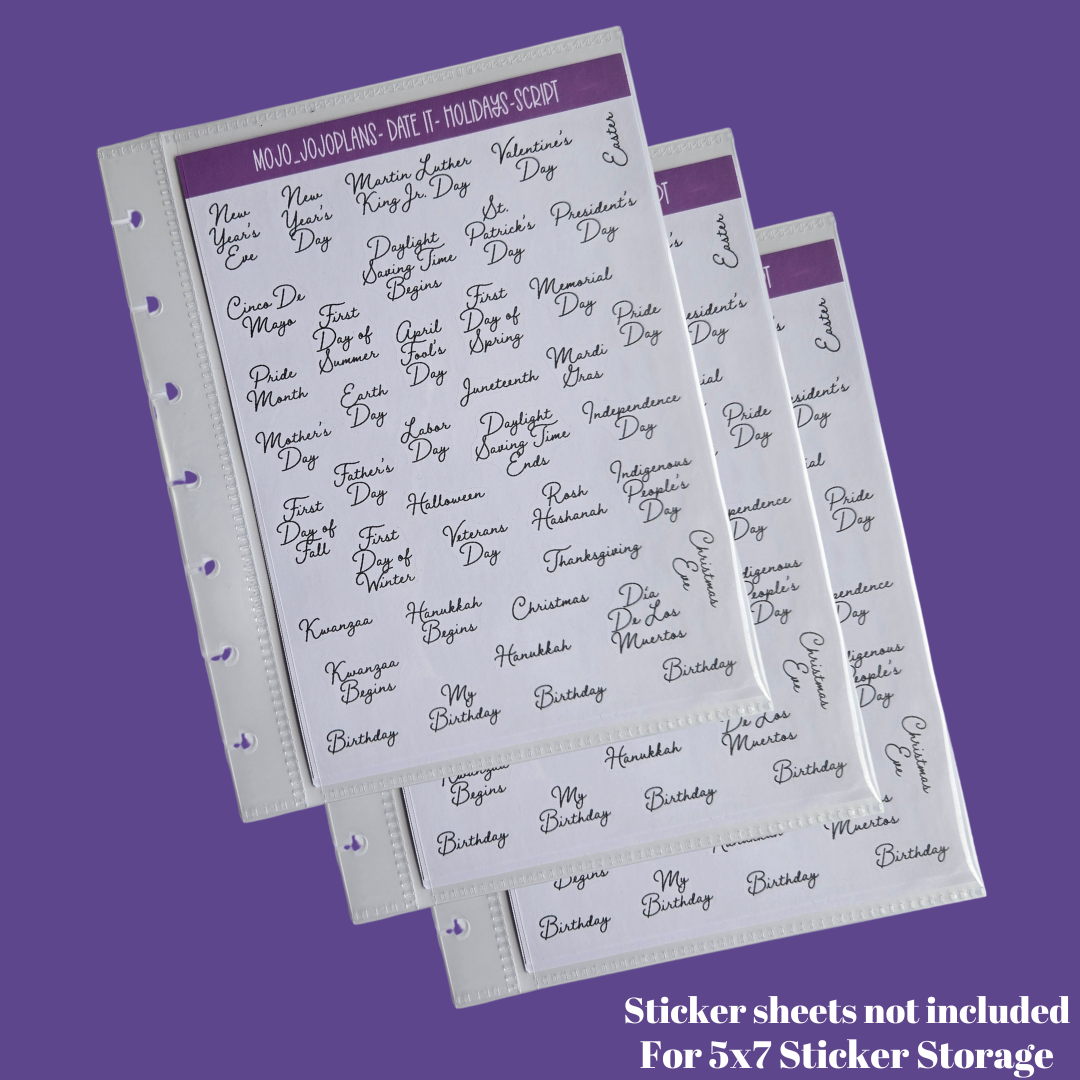 MOJO_JOJOPLANS- DATE IT- HOLIDAYS-SCRIPT
New
Year's
Eve
New
Year's
Day
Martin Luther
King Jr. Day
Valentine's
Day
Easter
Daylight
Saving Time
Begins
St.
Patrick's
Day
President's
Day
Cinco De
Mayo
First
Day of
Summer
April
Fool's
Day
First
Day of
Spring
Memorial
Day
Pride
Day
Pride
Month
Earth
Day
Juneteenth
Mardi
Gras
Mother's
Day
Father's
Day
Labor
Day
Daylight
Saving Time
Ends
Independence
Day
First
Day of
Fall
First
Day of
Winter
Halloween
Veterans
Day
Rosh
Hashanah
Indigenous
People's
Day
Thanksgiving
Christmas
Eve
Kwanzaa
Hanukkah
Begins
Christmas
Día
De Los
Muertos
Kwanzaa
Begins
Hanukkah
Birthday
My
Birthday
Birthday
Birthday
Easter
Day
Pride
Day
Day
Day
Christmas
Eve
De Los
Muertos
Hanukkah
Begins
My
Birthday
Birthday
Birthday
Birthday
Easter
Day
Pride
Day
Day
Day
Christmas
Eve
Muertos
Begins
My
Birthday
Birthday
Birthday
Birthday
Sticker sheets not included
For 5x7 Sticker Storage